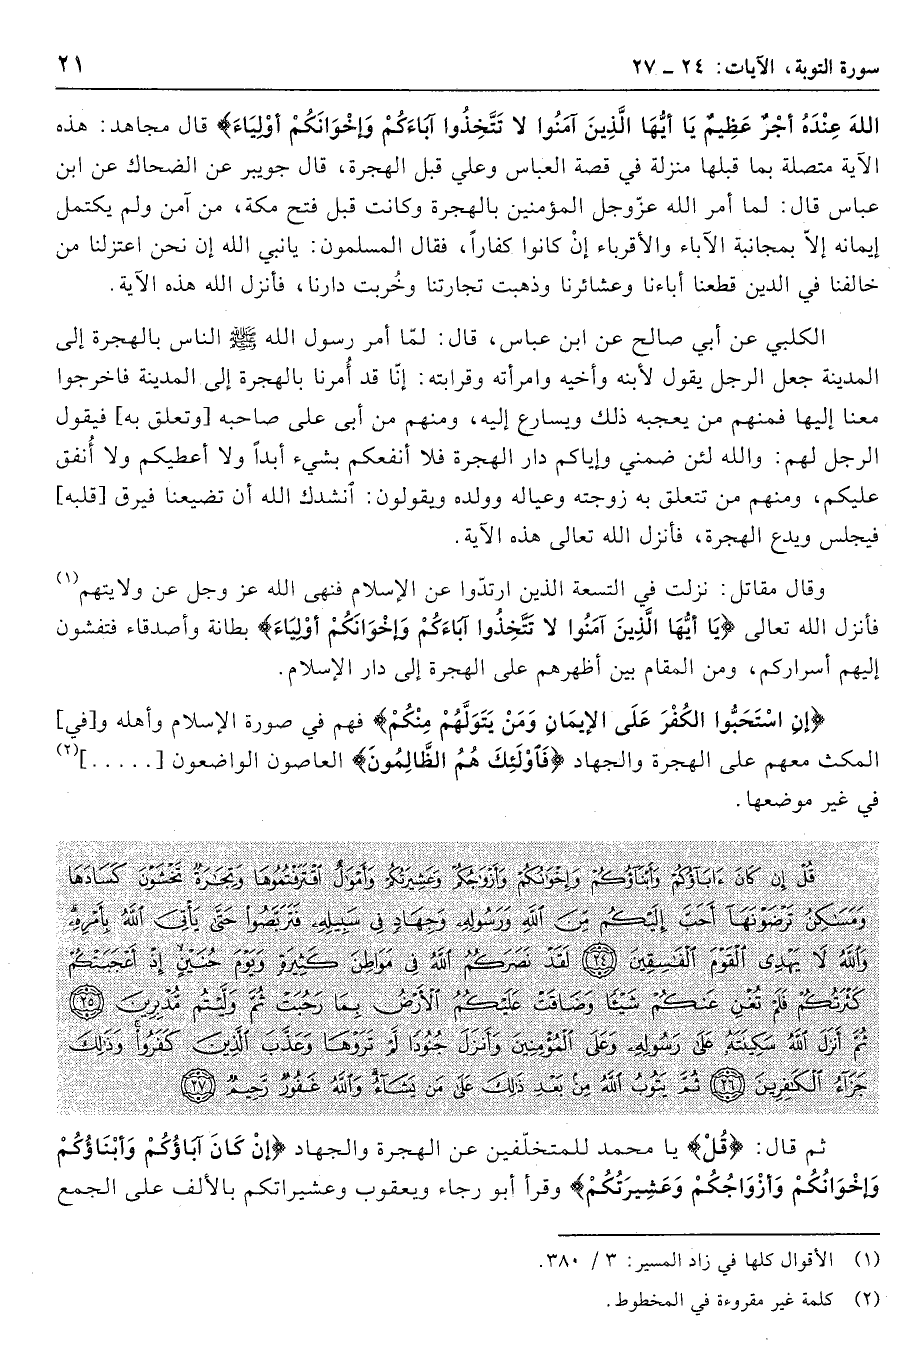 سورة التوبة، الآيات: ٢٤ ـ ٢٧
٢١
اللهَ عِنْدَهُ أجْرٌ عَظِيمٌ يَا أيُّهَا الَّذِينَ آمَنُوا لا تَتَّخِذُوا آبَاءَكُمْ وَإخْوَانَكُمْ أوْلِيَاءَ﴾ قال مجاهد: هذه
الآية متصلة بما قبلها منزلة في قصة العباس وعلي قبل الهجرة، قال جويبر عن الضحاك عن ابن
عباس قال: لما أمر الله عزّوجل المؤمنين بالهجرة وكانت قبل فتح مكة، من آمن ولم يكتمل
إيمانه إلاّ بمجانبة الآباء والأقرباء إنْ كانوا كفاراً، فقال المسلمون: يانبي الله إن نحن اعتزلنا من
خالفنا في الدين قطعنا أباءنا وعشائرنا وذهبت تجارتنا وخُربت دارنا، فأنزل الله هذه الآية.
الكلبي عن أبي صالح عن ابن عباس، قال: لمّا أمر رسول الله ﷺ الناس بالهجرة إلى
المدينة جعل الرجل يقول لأبنه وأخيه وامرأته وقرابته: إنّا قد أُمرنا بالهجرة إلى المدينة فاخرجوا
معنا إليها فمنهم من يعجبه ذلك ويسارع إليه، ومنهم من أبى على صاحبه [وتعلق به] فيقول
الرجل لهم: والله لئن ضمني وإياكم دار الهجرة فلا أنفعكم بشيء أبداً ولا أعطيكم ولا أُنفق
عليكم، ومنهم من تتعلق به زوجته وعياله وولده ويقولون: اُنشدك الله أن تضيعنا فيرق [قلبه]
فيجلس ويدع الهجرة، فأنزل الله تعالى هذه الآية.
وقال مقاتل: نزلت في التسعة الذين ارتدّوا عن الإسلام فنهى الله عز وجل عن ولايتهم(١)
فأنزل الله تعالى ﴿يَا أيُّهَا الَّذِينَ آمَنُوا لا تَتَّخِذُوا آبَاءَكُمْ وَإخْوَانَكُمْ أوْلِيَاءَ﴾ بطانة وأصدقاء فتفشون
إليهم أسراركم، ومن المقام بين أظهرهم على الهجرة إلى دار الإسلام.
﴿إنِ اسْتَحَبُّوا الكُفْرَ عَلَى الإيمَانِ وَمَنْ يَتَوَلَّهُمْ مِنْكُمْ﴾ فهم في صورة الإسلام وأهله و[في]
المكث معهم على الهجرة والجهاد ﴿فَأوْلَئِكَ هُمُ الظَّالِمُونَ﴾ العاصون الواضعون [.....](٢)
في غير موضعها.
قُلْ إِن كَانَ ءَابَآؤُكُمْ وَأَبْنَآؤُكُمْ وَإِخْوَٰنُكُمْ وَأَزْوَٰجُكُمْ وَعَشِيرَتُكُمْ وَأَمْوَٰلٌ ٱقْتَرَفْتُمُوهَا وَتِجَٰرَةٌ تَخْشَوْنَ كَسَادَهَا
وَمَسَٰكِنُ تَرْضَوْنَهَآ أَحَبَّ إِلَيْكُم مِّنَ ٱللَّهِ وَرَسُولِهِۦ وَجِهَادٍ فِى سَبِيلِهِۦ فَتَرَبَّصُوا۟ حَتَّىٰ يَأْتِىَ ٱللَّهُ بِأَمْرِهِۦ
وَٱللَّهُ لَا يَهْدِى ٱلْقَوْمَ ٱلْفَٰسِقِينَ ﴿٢٤﴾ لَقَدْ نَصَرَكُمُ ٱللَّهُ فِى مَوَاطِنَ كَثِيرَةٍ وَيَوْمَ حُنَيْنٍ إِذْ أَعْجَبَتْكُمْ
كَثْرَتُكُمْ فَلَمْ تُغْنِ عَنكُمْ شَيْـًٔا وَضَاقَتْ عَلَيْكُمُ ٱلْأَرْضُ بِمَا رَحُبَتْ ثُمَّ وَلَّيْتُم مُّدْبِرِينَ ﴿٢٥﴾
ثُمَّ أَنزَلَ ٱللَّهُ سَكِينَتَهُۥ عَلَىٰ رَسُولِهِۦ وَعَلَى ٱلْمُؤْمِنِينَ وَأَنزَلَ جُنُودًا لَّمْ تَرَوْهَا وَعَذَّبَ ٱلَّذِينَ كَفَرُوا۟ وَذَٰلِكَ
جَزَآءُ ٱلْكَٰفِرِينَ ﴿٢٦﴾ ثُمَّ يَتُوبُ ٱللَّهُ مِنۢ بَعْدِ ذَٰلِكَ عَلَىٰ مَن يَشَآءُ وَٱللَّهُ غَفُورٌ رَّحِيمٌ ﴿٢٧﴾
ثم قال: ﴿قُلْ﴾ يا محمد للمتخلّفين عن الهجرة والجهاد ﴿إنْ كَانَ آبَاؤُكُمْ وَأبْنَاؤُكُمْ
وَإخْوَانُكُمْ وَأزْوَاجُكُمْ وَعَشِيرَتُكُمْ﴾ وقرأ أبو رجاء ويعقوب وعشيراتكم بالألف على الجمع
(١) الأقوال كلها في زاد المسير: ٣ / ٣٨٠.
(٢) كلمة غير مقروءة في المخطوط.